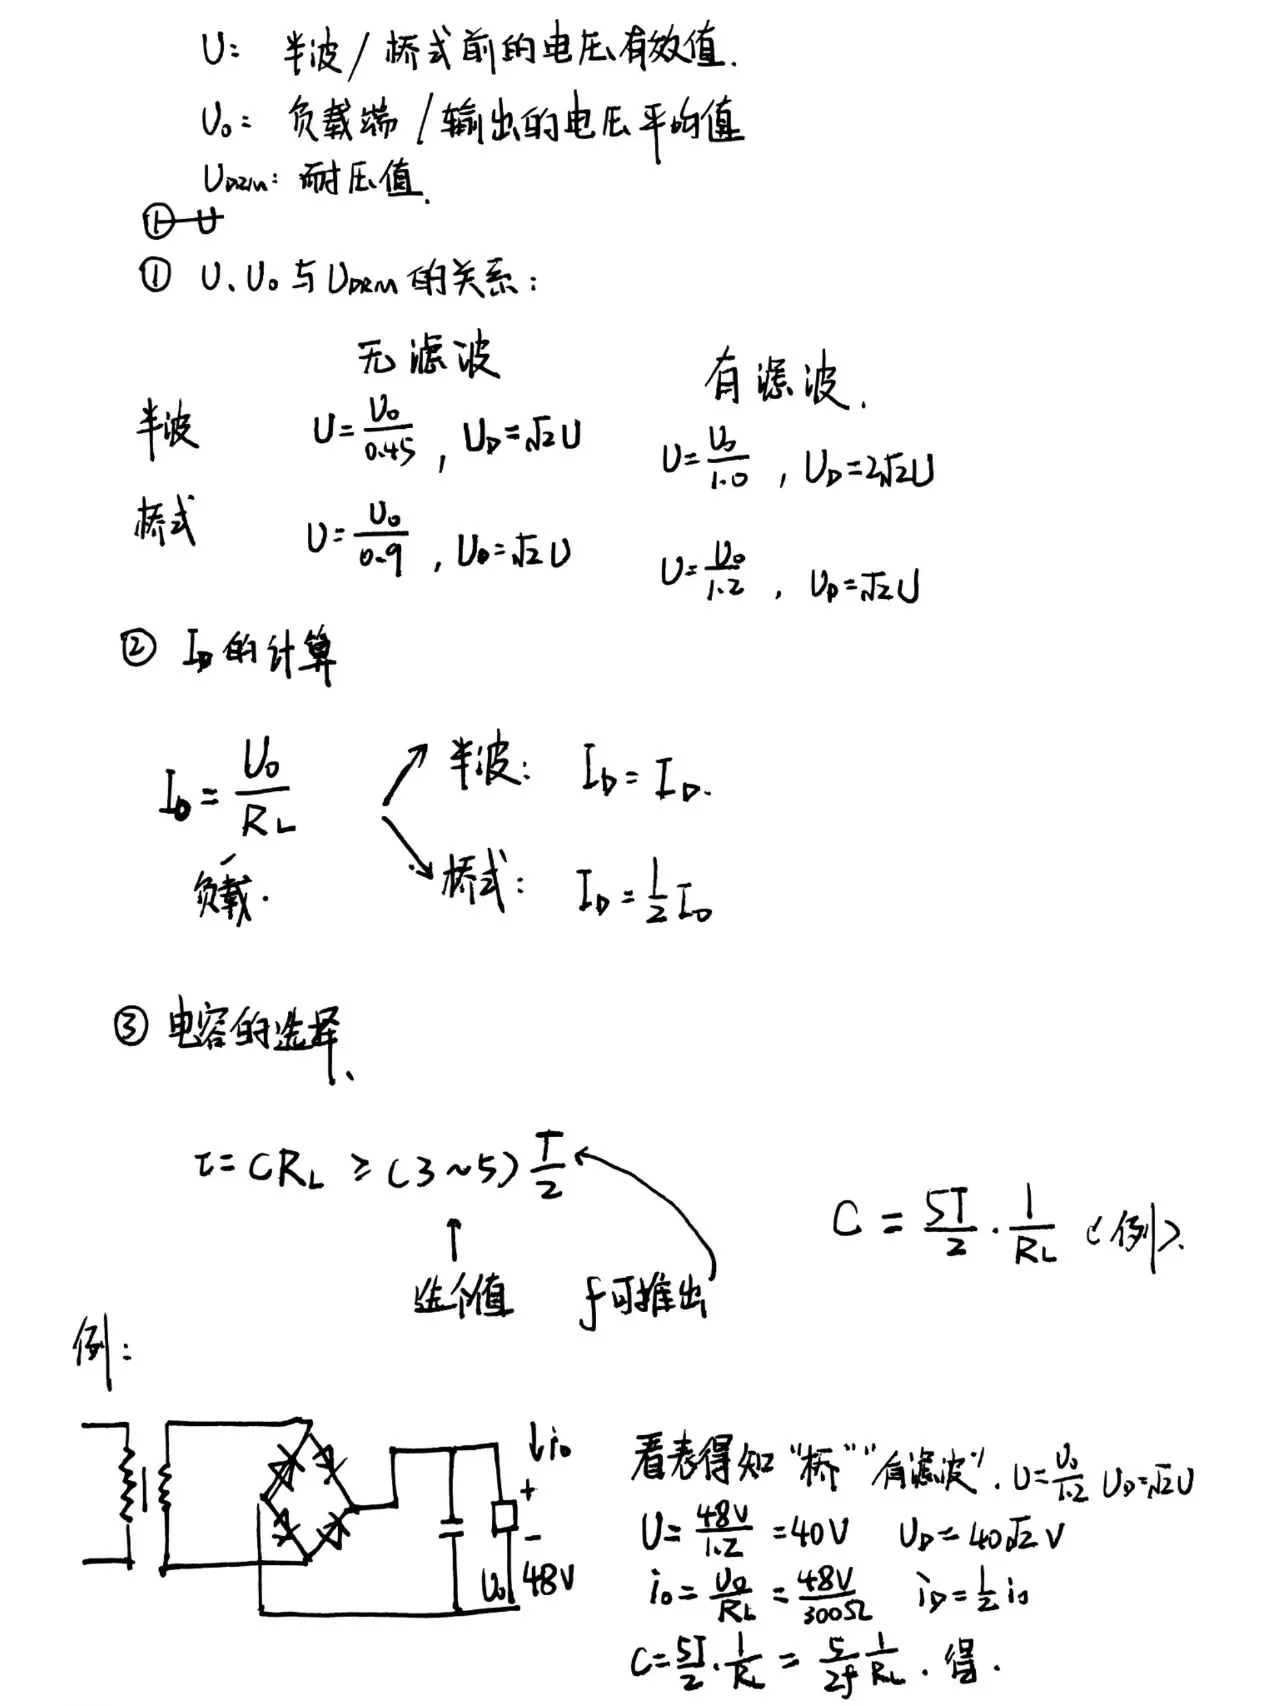 U: 半波/桥式前的电压有效值.
U₀: 负载端/输出的电压平均值
U_DRM: 耐压值.
① U
① U、U₀与U_DRM的关系:
无滤波 有滤波.
半波 U=U₀/0.45, U_D=√2U U=U₀/1.0, U_D=2√2U
桥式 U=U₀/0.9, U_D=√2U U=U₀/1.2, U_D=√2U
② I_D的计算
I₀=U₀/R_L 半波: I_D=I_D.
负载. 桥式: I_D=1/2 I₀
③ 电容的选择、
τ=CR_L≥(3~5)T/2 C=5T/2·1/R_L (例).
选个值 f可推出
例:
↓i₀
+
-
U₀ 48V
看表得知"桥""有滤波". U=U₀/1.2 U_D=√2U
U=48V/1.2=40V U_D=40√2V
i₀=U₀/R_L=48V/300Ω i_D=1/2 i₀
C=5T/2·1/R_L=5/2f 1/R_L. 得.